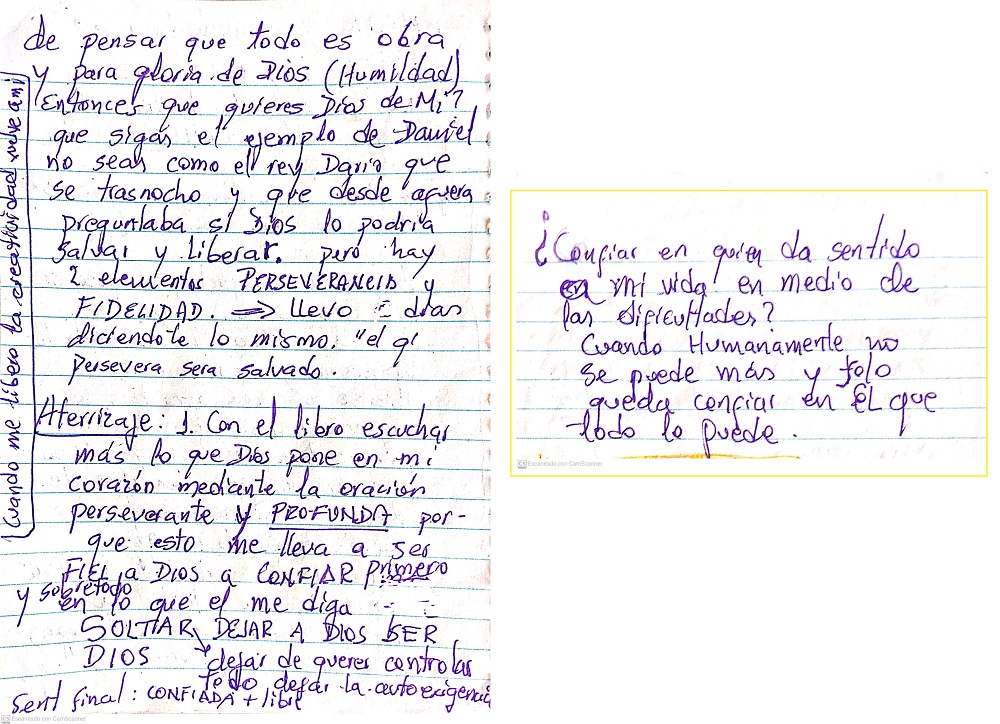 de pensar que todo es obra
y para gloria de Dios (Humildad)
Entonces que quieres Dios de Mi?
que sigas el ejemplo de Daniel
no seas como el rey Dario que
se trasnocho y que desde afuera
preguntaba si Dios lo podria
salvar y liberar. pero hay
2 elementos PERSEVERANCIA y
FIDELIDAD. ⇒ llevo dias
diciendote lo mismo. "el q'
persevera sera salvado.
Aterrizaje: 1. Con el libro escuchar
más lo que Dios pone en mi
corazón mediante la oración
perseverante y PROFUNDA por-
que esto me lleva a ser
FIEL a DIOS a CONFIAR primero
y sobretodo
en lo que el me diga
SOLTAR, DEJAR A DIOS SER
DIOS
dejar de querer controlar
todo dejar la autoexigencia
Sent final: CONFIADA + libre
Cuando me libero la creatividad vuelve a mi
Escaneado con CamScanner
¿Confiar en quien da sentido
en mi vida en medio de
las dificultades?
Cuando Humanamente no
se puede más y solo
queda confiar en ÉL que
todo lo puede.
Escaneado con CamScanner